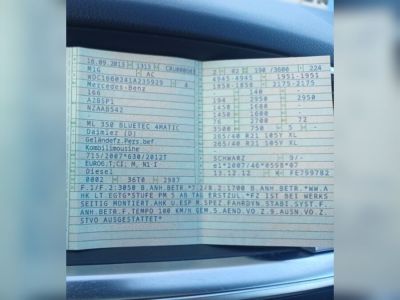 18.09.2013 1313
M1G AC
WDC1660241A235929 4
Mercedes-Benz
166
A2BSP1
NZAAB542
ML 350 BLUETEC 4MATIC
Daimler (D)
Geländefz.Pers.bef.
Kombilimousine
715/2007*630/2012J
EURO6;
Diesel
0002 36T0 2987
2 02 190 /3600 224
4945-4945 1951-1951
1858-1858 2175-2175
140
194 2950 2950
1450 1600
1450 1600
76 2700 72
3500 750 5
265/40 R21 105Y XL
265/40 R21 105Y XL
SCHWARZ 9/-
e1*2007/46*0598*07
13.12.12 K FE799782
F.1/F.2:3050 B.ANH.BETR.*7.2/8.2:1700 B.ANH.BETR.*WW.A
HK LT.EGTG*STUFE PM 5 AB TAG ERSTZUL.*FZ IST BEI WERKS
SEITIG MONTIERT.AHK U.ESP M.SPEZ.FAHRDYN.STABI.SYST.F.
ANH.BETR.F.TEMPO 100 KM/H GEM.5.AEND.VO Z 9.AUSN.VO.Z.
STVO AUSGESTATTET*